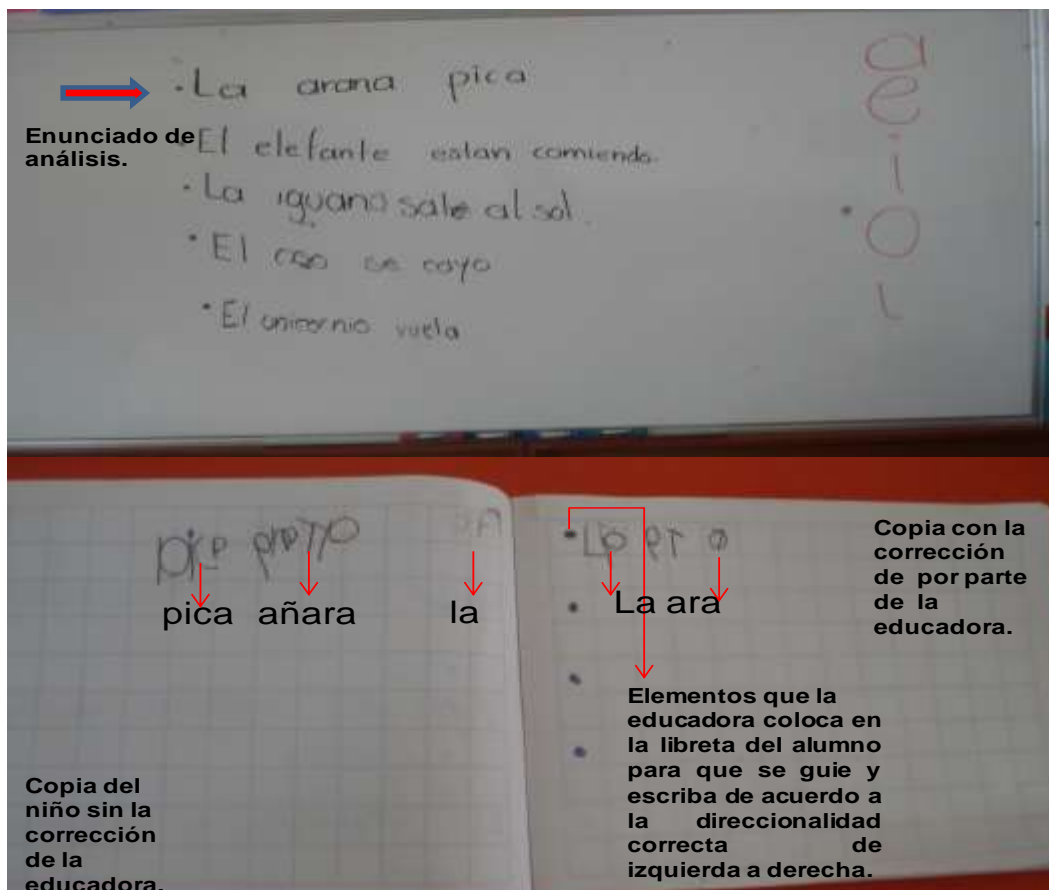 · La arana pica
Enunciado de
análisis.
· El elefante estan comiendo.
· La iguana sale al sol.
· El oso se cayo
· El unicornio vuela
a
e
i
o
pica añara la
La ara
Copia con la
corrección
de por parte
de la
educadora.
Elementos que la
educadora coloca en
la libreta del alumno
para que se guie y
escriba de acuerdo a
la direccionalidad
correcta de
izquierda a derecha.
Copia del
niño sin la
corrección
de la
educadora.